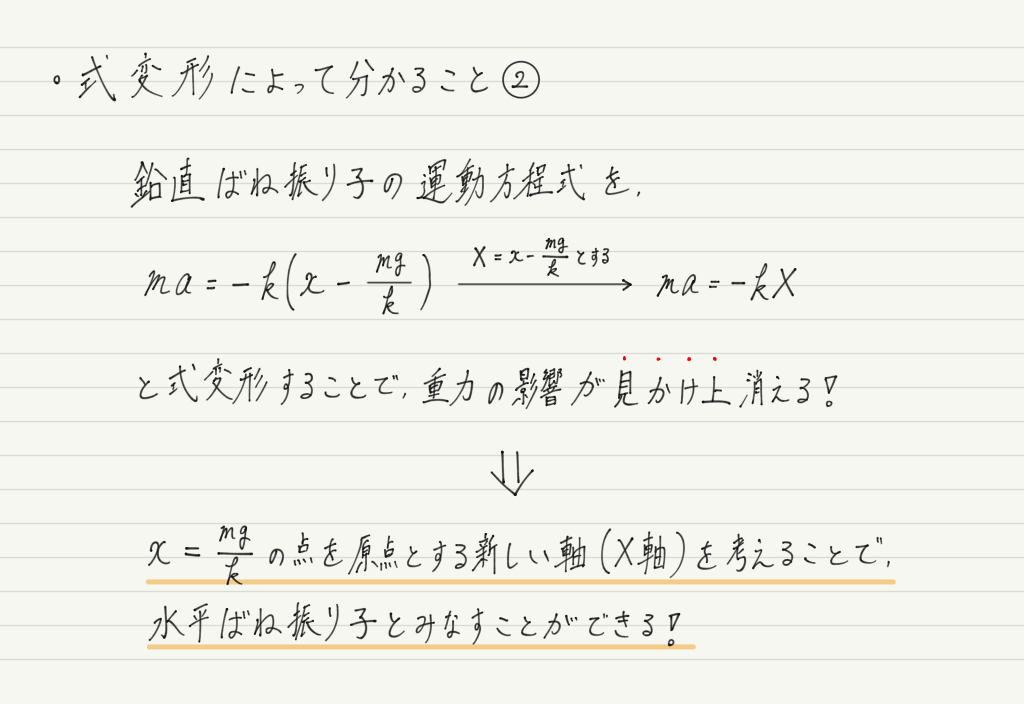 ・式変形によって分かること②
鉛直ばね振り子の運動方程式を,
ma = -k(x - mg/k) X = x - mg/k とする → ma = -kX
と式変形することで,重力の影響が見かけ上消える!
⇓
x = mg/k の点を原点とする新しい軸(X軸)を考えることで,
水平ばね振り子とみなすことができる!